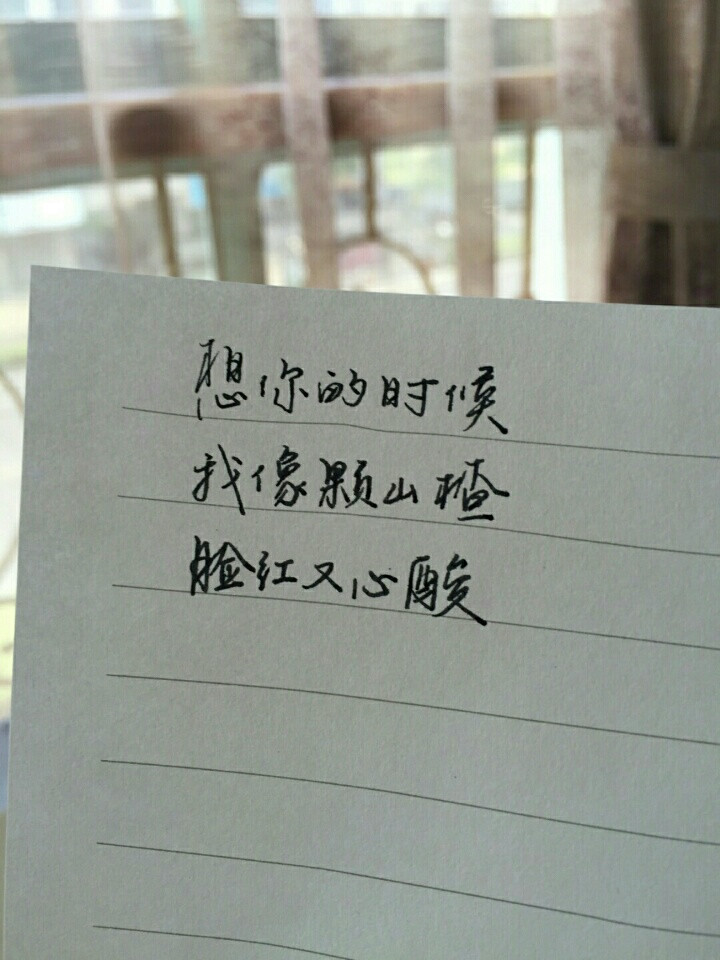 想你的时候
我像颗山楂
脸红又心酸